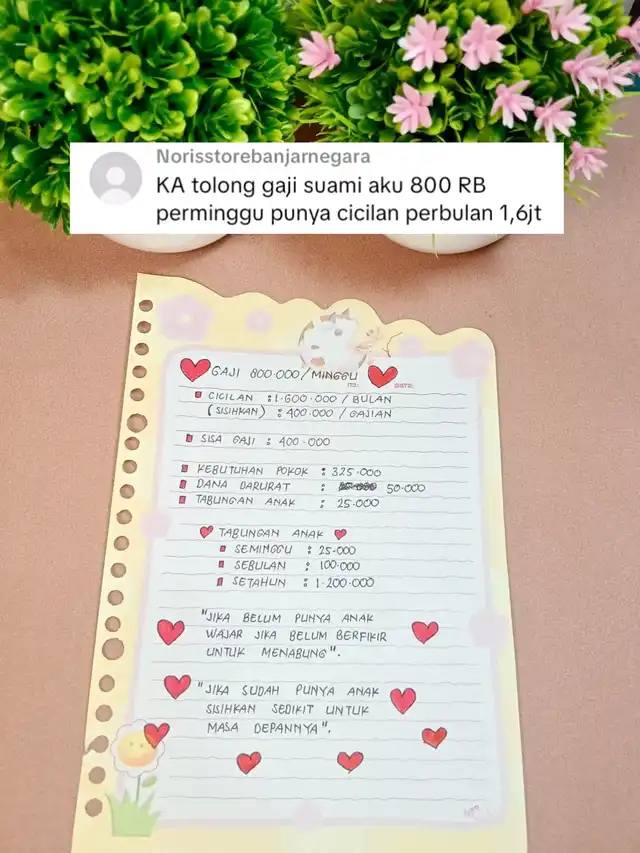 Norisstorebanjarnegara
KA tolong gaji suami aku 800 RB
perminggu punya cicilan perbulan 1,6jt
GAJI 800.000/MINGGU
CICILAN :1.600.000 / BULAN
(SISIHKAN) : 400.000 / GAJIAN
SISA GAJI : 400.000
KEBUTUHAN POKOK : 325.000
DANA DARURAT : 50.000
TABUNGAN ANAK : 25.000
TABUNGAN ANAK
SEMINGGU : 25.000
SEBULAN : 100.000
SETAHUN : 1.200.000
"JIKA BELUM PUNYA ANAK
WAJAR JIKA BELUM BERFIKIR
UNTUK MENABUNG".
"JIKA SUDAH PUNYA ANAK
SISIHKAN SEDIKIT UNTUK
MASA DEPANNYA".